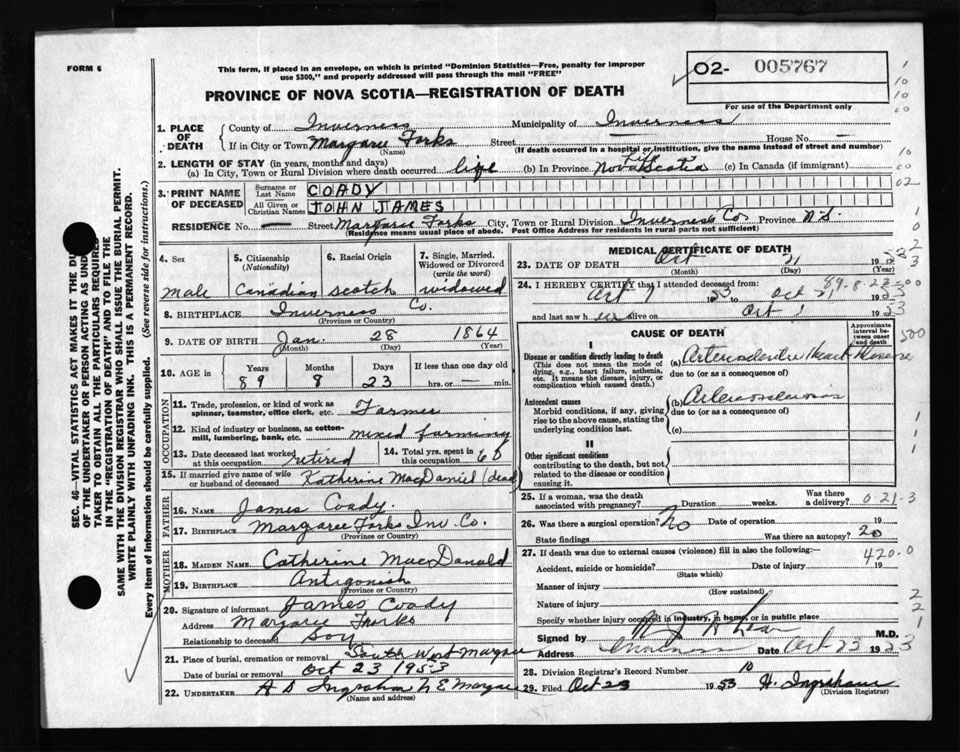 FORM 6
This form, if placed in an envelope, on which is printed "Dominion Statistics—Free, penalty for improper
use $300," and properly addressed will pass through the mail "FREE"
PROVINCE OF NOVA SCOTIA—REGISTRATION OF DEATH
02- 005767
For use of the Department only
SEC. 46—VITAL STATISTICS ACT MAKES IT THE
OF THE UNDERTAKER OR PERSON ACTING AS
TAKER TO OBTAIN ALL THE PARTICULARS REQUIRED
IN THE "REGISTRATION OF DEATH" AND TO FILE THE
SAME WITH THE DIVISION REGISTRAR WHO SHALL ISSUE THE BURIAL PERMIT.
WRITE PLAINLY WITH UNFADING INK. THIS IS A PERMANENT RECORD.
Every item of information should be carefully supplied. (See reverse side for instructions.)
1. PLACE OF DEATH
County of Inverness Municipality of Inverness
If in City or Town Margaree Forks Street — House No. —
(Name) (If death occurred in a hospital or institution, give the name instead of street and number)
2. LENGTH OF STAY (in years, months and days)
(a) In City, Town or Rural Division where death occurred life (b) In Province Nova Scotia Life (c) In Canada (if immigrant)
3. PRINT NAME OF DECEASED
Surname or Last Name COADY
All Given or Christian Names JOHN JAMES
RESIDENCE No. — Street Margaree Forks City, Town or Rural Division Inverness Co Province N.S.
(Residence means usual place of abode. Post Office Address for residents in rural parts not sufficient)
4. Sex male
5. Citizenship (Nationality) Canadian
6. Racial Origin Scotch
7. Single, Married, Widowed or Divorced (write the word) widowed
8. BIRTHPLACE Inverness Co.
(Province or Country)
9. DATE OF BIRTH Jan. 28 1864
(Month) (Day) (Year)
10. AGE in Years 89 Months 8 Days 23 If less than one day old hrs. or — min.
OCCUPATION
11. Trade, profession, or kind of work as spinner, teamster, office clerk, etc. Farmer
12. Kind of industry or business, as cotton-mill, lumbering, bank, etc. mixed farming
13. Date deceased last worked at this occupation retired
14. Total yrs. spent in this occupation 60
15. If married give name of wife or husband of deceased Katherine MacDaniel (dead)
FATHER
16. Name James Coady.
17. BIRTHPLACE Margaree Forks Inv. Co.
(Province or Country)
MOTHER
18. MAIDEN NAME Catherine MacDonald
19. BIRTHPLACE Antigonish
(Province or Country)
20. Signature of informant James Coady
Address Margaree Forks
Relationship to deceased Son
21. Place of burial, cremation or removal South West Margaree
Date of burial or removal Oct 23 1953
22. UNDERTAKER A D Ingraham N E Margaree
(Name and address)
MEDICAL CERTIFICATE OF DEATH
23. DATE OF DEATH Oct 21 1953
(Month) (Day) (Year)
89-8-23
24. I HEREBY CERTIFY that I attended deceased from:
1953 Oct 21 1953
and last saw h alive on Oct 1953
CAUSE OF DEATH
Approximate interval between onset and death
I
Disease or condition directly leading to death
(This does not mean the mode of dying, e.g., heart failure, asthenia, etc. It means the disease, injury, or complication which caused death.)
(a) Heart Disease
due to (or as a consequence of)
Antecedent causes
Morbid conditions, if any, giving rise to the above cause, stating the underlying condition last.
(b) Arteriosclerosis
due to (or as a consequence of)
(c)
II
Other significant conditions
contributing to the death, but not related to the disease or condition causing it.
25. If a woman, was the death associated with pregnancy? Duration weeks. Was there a delivery? 0-21-3
26. Was there a surgical operation? No Date of operation 19
State findings Was there an autopsy? No
27. If death was due to external causes (violence) fill in also the following:— 420.0
Accident, suicide or homicide? Date of injury 19
(State which)
Manner of injury
(How sustained)
Nature of injury
Specify whether injury occurred in industry, in home, or in public place
Signed by M.D.
Address Inverness Date Oct 23 19
28. Division Registrar's Record Number 10
29. Filed Oct 23 1953 H. Ingraham
(Division Registrar)